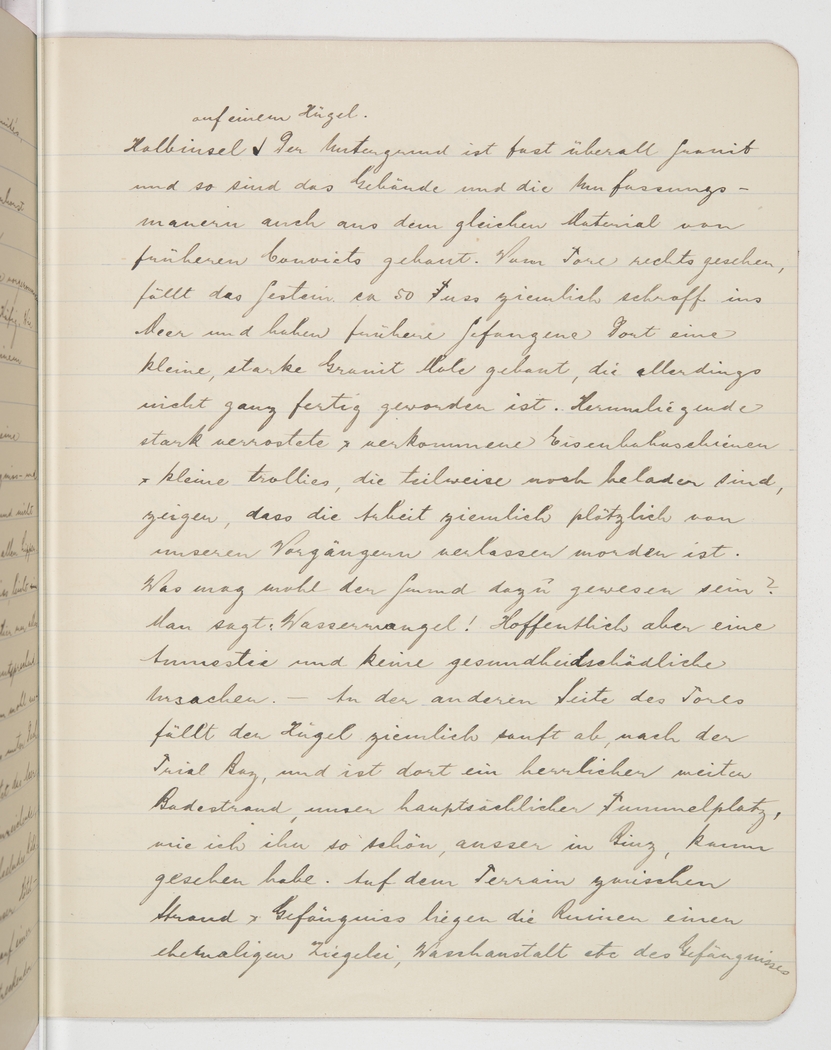 auf einem Hügel.
Halbinsel Der Untergrund ist fast überall Granit
und so sind das Gebäude und die Umfassungs-
mauern auch aus dem gleichen Material von
früheren Convicts gebaut. Vom Tore rechts gesehen,
fällt das Gestein ca 50 Fuss ziemlich schroff ins
Meer und haben frühere Gefangene dort eine
kleine, starke Granit Mole gebaut, die allerdings
nicht ganz fertig geworden ist. Herumliegende
stark verrostete & verkommene Eisenbahnschienen
& kleine trollies, die teilweise noch beladen sind,
zeigen, dass die Arbeit ziemlich plötzlich von
unseren Vorgängern verlassen worden ist.
Was mag wohl der Grund dazu gewesen sein?
Man sagt: Wassermangel! Hoffentlich aber eine
Amnestie und keine gesundheitschädliche
Ursachen. – An der anderen Seite des Tores
fällt der Hügel ziemlich sanft ab, nach der
Trial Bay, und ist dort ein herrlicher weiter
Badestrand, unser hauptsächlicher Tummelplatz,
wie ich ihn so schön, ausser in Binz, kaum
gesehen habe. Auf dem Terrain zwischen
Strand & Gefängniss liegen die Ruinen einer
ehemaligen Ziegelei, Waschanstalt etc des Gefängnisses